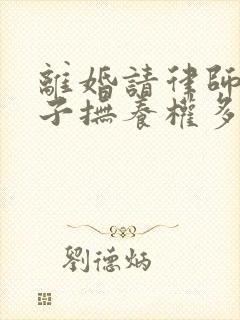 離婚請律師
子撫養權多
劉德炳